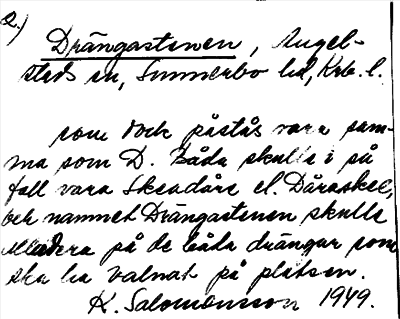 2.)
Drängastenen, Angel-
stads sn, Sunnerbo hd, Krb. l.
som dock påstås vara sam-
ma som D. Båda skulle i så
fall vara Skeadåre el. Dåraskel,
och namnet Drängastenen skulle
på de båda drängar som
ska ha valnat på platsen.
K. Salomonsson 1949.